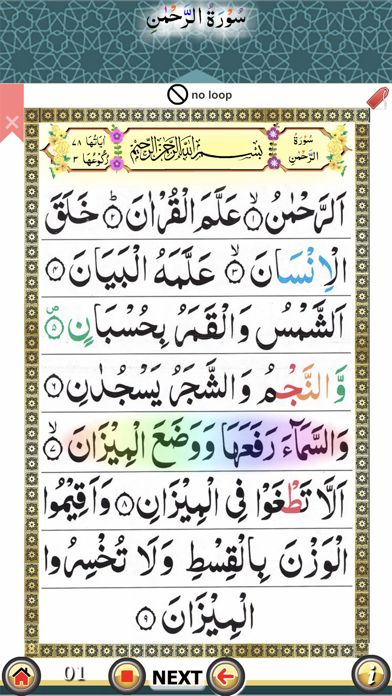 سُوْرَةُ الرَّحْمٰنِ
no loop
سُوْرَةُ الرَّحْمٰنِ
بِسْمِ اللهِ الرَّحْمٰنِ الرَّحِيْمِ
اٰيَاتُهَا ٧٨
رُكُوْعُهَا ٣
اَلرَّحْمٰنُ ۙ﴿١﴾ عَلَّمَ الْقُرْاٰنَ ؕ﴿٢﴾ خَلَقَ
الْاِنْسَانَ ۙ﴿٣﴾ عَلَّمَهُ الْبَيَانَ ﴿٤﴾
اَلشَّمْسُ وَالْقَمَرُ بِحُسْبَانٍ ۪ۙ﴿٥﴾
وَّالنَّجْمُ وَالشَّجَرُ يَسْجُدٰنِ ﴿٦﴾
وَالسَّمَآءَ رَفَعَهَا وَوَضَعَ الْمِيْزَانَ ۙ﴿٧﴾
اَلَّا تَطْغَوْا فِى الْمِيْزَانِ ﴿٨﴾ وَاَقِيْمُوا
الْوَزْنَ بِالْقِسْطِ وَلَا تُخْسِرُوا
الْمِيْزَانَ ﴿٩﴾
01 NEXT i